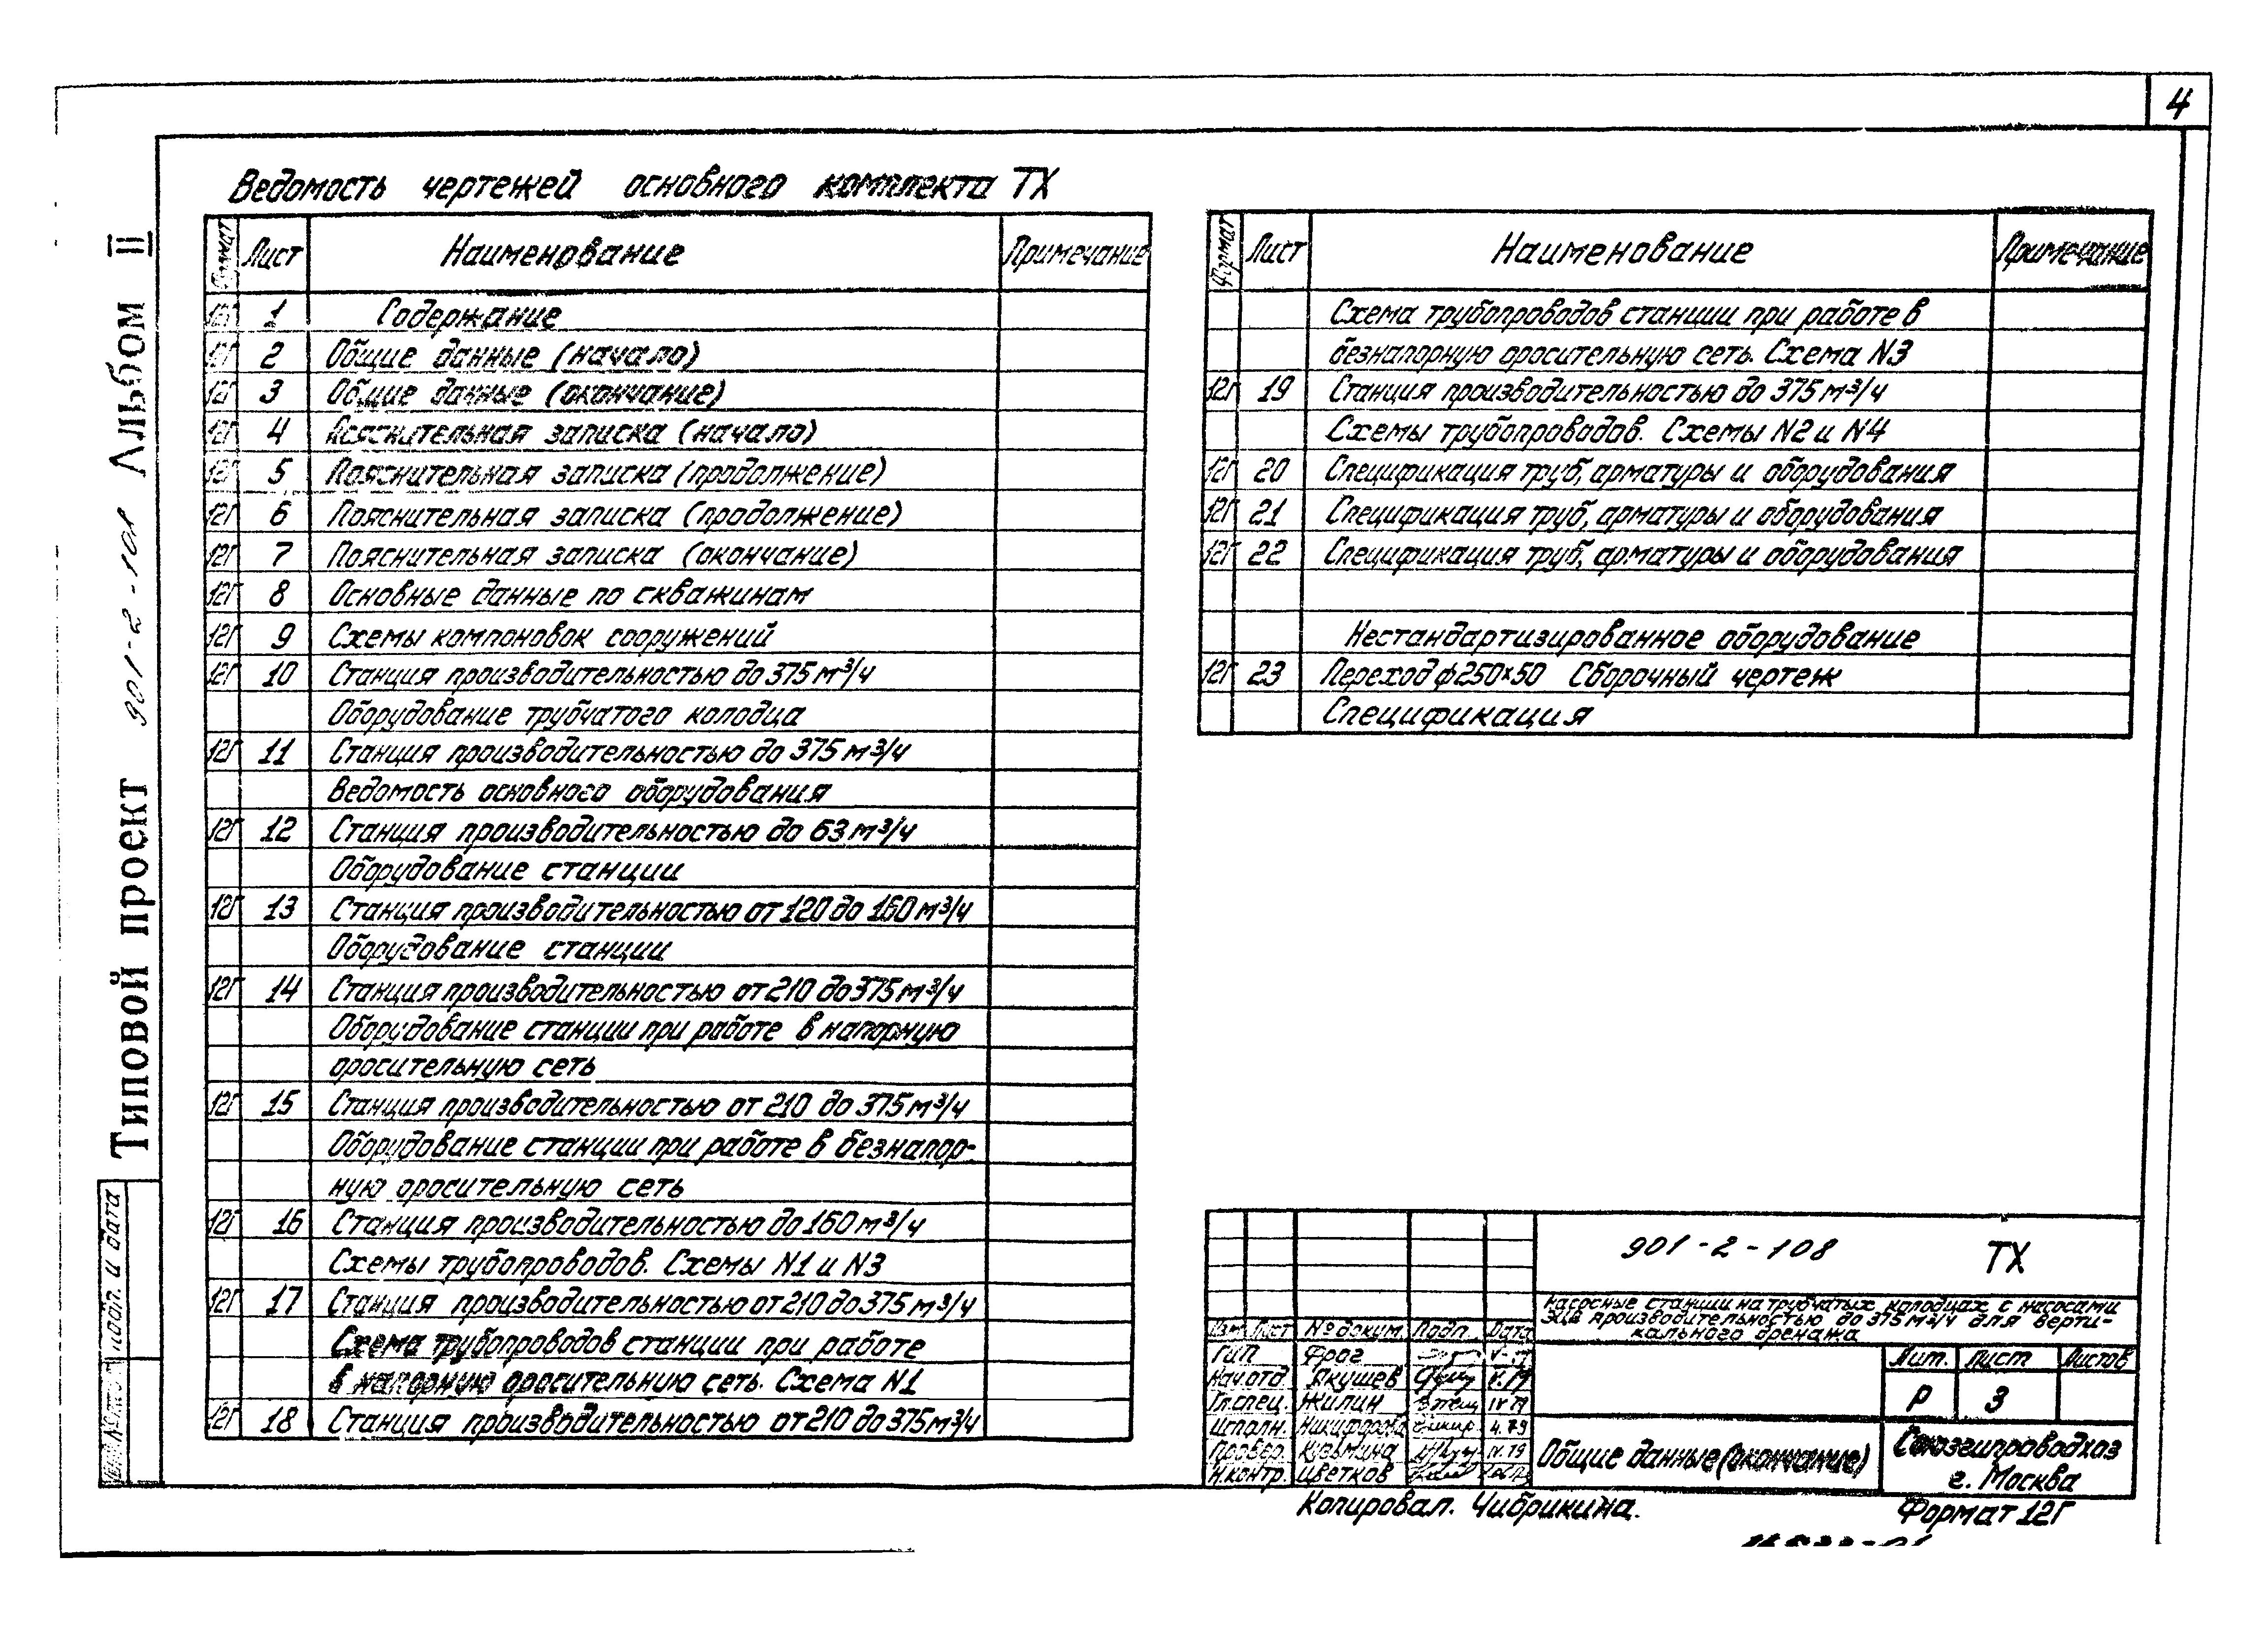 4
Типовой проект 901-2-108 Альбом II
Ведомость чертежей основного комплекта ТХ
Формат Лист Наименование Примечание
1 Содержание
12Г 2 Общие данные (начало)
12Г 3 Общие данные (окончание)
12Г 4 Пояснительная записка (начало)
12Г 5 Пояснительная записка (продолжение)
12Г 6 Пояснительная записка (продолжение)
12Г 7 Пояснительная записка (окончание)
12Г 8 Основные данные по скважинам
12Г 9 Схемы компоновок сооружений
12Г 10 Станция производительностью до 375 м³/ч
Оборудование трубчатого колодца
12Г 11 Станция производительностью до 375 м³/ч
Ведомость основного оборудования
12Г 12 Станция производительностью до 63 м³/ч
Оборудование станции
12Г 13 Станция производительностью от 120 до 160 м³/ч
Оборудование станции
12Г 14 Станция производительностью от 210 до 375 м³/ч
Оборудование станции при работе в напорную
оросительную сеть
12Г 15 Станция производительностью от 210 до 375 м³/ч
Оборудование станции при работе в безнапор-
ную оросительную сеть
12Г 16 Станция производительностью до 160 м³/ч
Схемы трубопроводов. Схемы N1 и N3
12Г 17 Станция производительностью от 210 до 375 м³/ч
Схема трубопроводов станции при работе
в напорную оросительную сеть. Схема N1
12Г 18 Станция производительностью от 210 до 375 м³/ч
Формат Лист Наименование Примечание
Схема трубопроводов станции при работе в
безнапорную оросительную сеть. Схема N3
12Г 19 Станция производительностью до 375 м³/ч
Схемы трубопроводов. Схемы N2 и N4
12Г 20 Спецификация труб, арматуры и оборудования
12Г 21 Спецификация труб, арматуры и оборудования
12Г 22 Спецификация труб, арматуры и оборудования
Нестандартизированное оборудование
12Г 23 Переход ф250×50 Сборочный чертеж
Спецификация
901-2-108 ТХ
Насосные станции на трубчатых колодцах с насосами
ЭЦВ производительностью до 375 м³/ч для верти-
кального дренажа
Изм. Лист № докум. Подп. Дата
ГИП Фрог
Нач.отд Якушев V.79
Гл.спец. Жилин IV 79
Исполн. Никифорова 4.79
Провер. Кузьмина IV.79
Н.контр. Цветков
Лит. Лист Листов
Р 3
Общие данные (окончание)
Союзгипроводхоз
г. Москва
Подп. и дата
Копировал. Чибрикина.
Формат 12Г